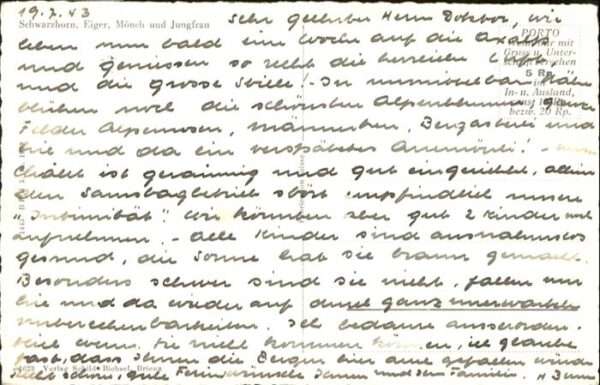 19.7.43
Schwarzhorn, Eiger, Mönch und Jungfrau
Sehr geehrter Herr Doktor, wir
leben nun bald eine Woche auf die Axalp
und geniessen so recht die herrliche Luft
und die grosse Stille! In unmittelbarer Nähe
blühen noch die schönsten Alpenblumen, ganze
Felder Alpenrosen, Männertreu, Bergastern und
hie und da ein verspätetes
Châlet ist geräumig und gut eingerichtet, allein
der stört empfindlich unsere
"Intimität". Wir könnten aber gut 2 Kinder mehr
aufnehmen. - Alle Kinder sind ausnahmslos
gesund, die Sonne hat sie braun gemacht.
Besonders schwer sind sie nicht, fallen nur
hie und da wieder auf durch ganz unerwartete
Unberechenbarkeiten. Ich bedaure ausserordent-
lich wenn Sie nicht kommen können, ich glaube
fast, dass Ihnen die Berge hier gefallen würde.
Recht schöne, gute Ferienwünsche Ihnen und der Familie.
PORTO
mit
Gruss u. Unter-
schrift
5 Rp.
In- u. Ausland,
bezw. 20 Rp.
Verlag Schild-Bichsel, Brienz